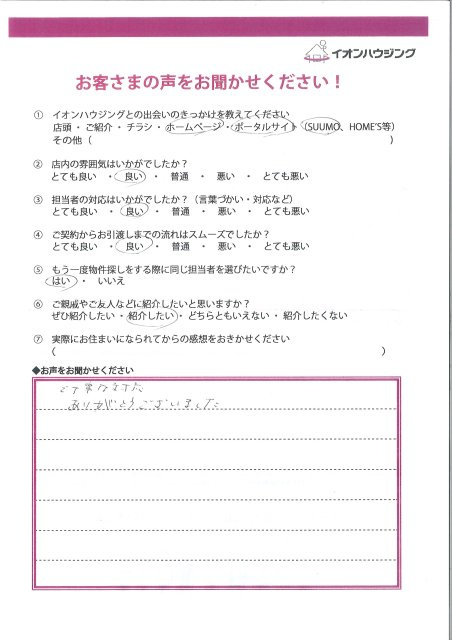 イオンハウジング
お客さまの声をお聞かせください！
① イオンハウジングとの出会いのきっかけを教えてください
店頭 ・ ご紹介 ・ チラシ ・ ホームページ ・ ポータルサイト （SUUMO、HOME'S等）
その他（ ）
② 店内の雰囲気はいかがでしたか？
とても良い ・ 良い ・ 普通 ・ 悪い ・ とても悪い
③ 担当者の対応はいかがでしたか？（言葉づかい・対応など）
とても良い ・ 良い ・ 普通 ・ 悪い ・ とても悪い
④ ご契約からお引渡しまでの流れはスムーズでしたか？
とても良い ・ 良い ・ 普通 ・ 悪い ・ とても悪い
⑤ もう一度物件探しをする際に同じ担当者を選びたいですか？
はい ・ いいえ
⑥ ご親戚やご友人などに紹介したいと思いますか？
ぜひ紹介したい ・ 紹介したい ・ どちらともいえない ・ 紹介したくない
⑦ 実際にお住まいになられてからの感想をおきかせください
（ ）
◆お声をお聞かせください
ありがとうございました